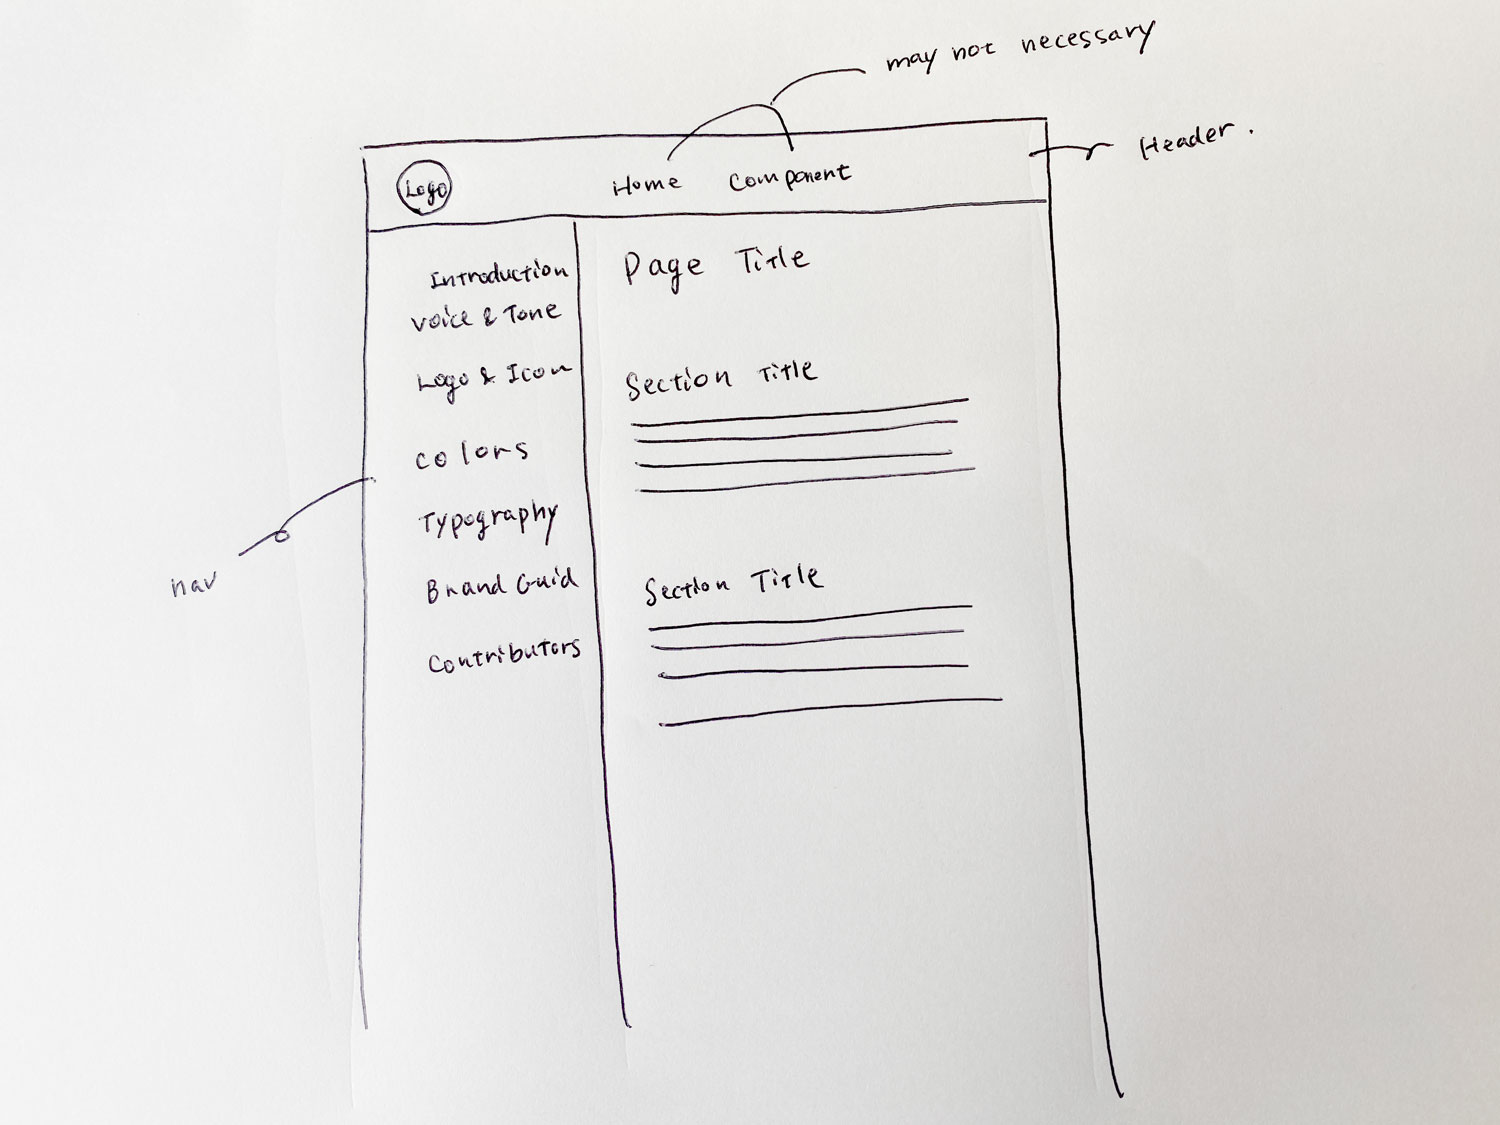 may not necessary
Header.
Logo
Home Component
Introduction
Voice & Tone
Logo & Icon
Colors
Typography
Brand Guid
Contributors
nav
Page Title
Section Title
Section Title